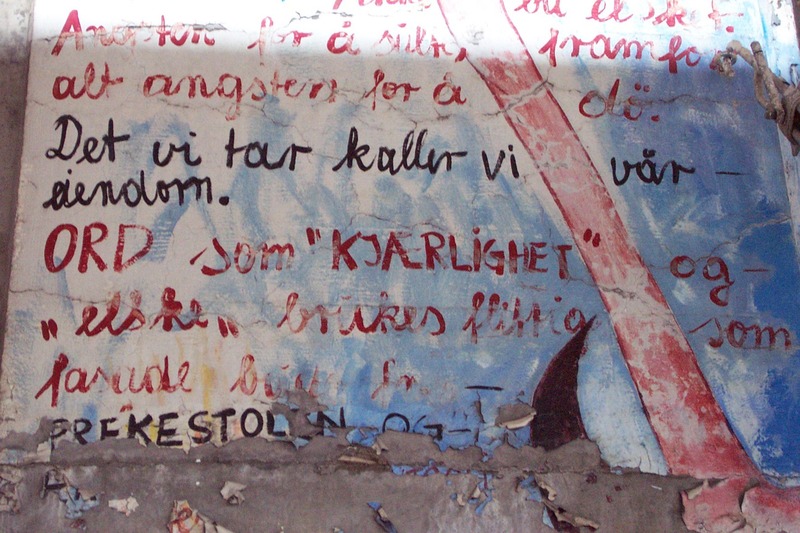 bli elsket.
for å sulte, framfor
alt angsten for å dö.
Det vi tar kaller vi vår —
eiendom.
ORD som "KJÆRLIGHET" og —
„elske„ brukes flittig som
fasade
PREKESTOLEN OG —